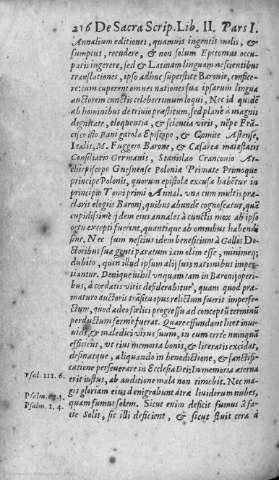 216 De Sacra Scrip. Lib. II. Pars I.
Annalium editiones, quamuis ingentis molis, &
sumptus, recudere, & non solum Epitomas occu-
paris ingerere, sed & Latinam linguam nescientibus
translationes, ipso adhuc superstite Baronio, confice-
re: cum cuperent omnes nationes sua ipsarum lingua
auctorem cunctis celeberrimum loqui. Nec id quidē
ab hominibus de triuio præstitum, sed planè à magni
dignitate, eloquentia, & scientia viris, nempe Fran-
cisco
Panigarola Episcopo, & Comite Astense,
Italis, M. Fuggero Barone, & Cæsareæ maiestatis
Consiliario Germanis, Stanislao
Ar-
chiepiscopo Gnesnense Poloniæ Primate Primoque
principe Polonis, quorum epistolæ
habetur in
principio Tomi primi Annal. vna cum multis præ-
claris elogiis Baronij, quibus abunde cognoscatur, quā
cupidissimè ijdem eius annales à cunctis mox ab ipso
ortu excepti fuerint, quantique ab omnibus habendi
sint. Nec sum nescius idem beneficium à Gallis Do-
ctoribus suæ genti paratum iam olim esse, nimimeq;
dubito, quin illud ipsum alij suis nationibus imper-
tiantur. Denique nihil vnquam tam in Baronij operi-
bus, à cordatis viris desiderabitur, quam quod præ-
maturo auctoris
opus relictum fuerit imperfe-
ctum, quod adeo fœlici progressu ad concepti terminū
perductum fermè fuerat. Quare effundant licet inui-
di, & maledici virus suum, in eum certè nunquā
efficient, vt eius memoria bonis, & literatis excidat,
desinatque, aliquando in benedictione, & sanctifi-
catione perseuerare in Ecclesia Dei. In memoria æterna
Psal. 111. 6. erit iustus, ab auditione mala non timebit. Nec ma-
gis gloriam eius denigrabunt atra liuidorum nubes,
Psalm.
quam fumus solem. Sicut enim deficit fumus à fa-
Psalm.
cie Solis, sic illi deficient, & sicut fluit cera à